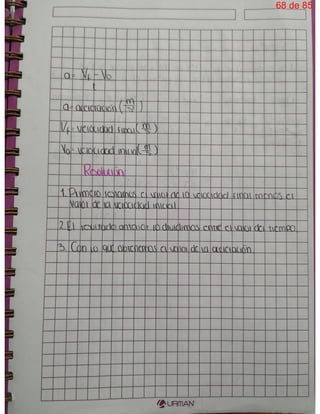 68 de 85
a= Vf - Vo
t
a= aceleración (m/s²)
Vf= velocidad final (m/s)
Vo= velocidad inicial (m/s)
Resolución
1. Primero restamos el valor de la velocidad final menos el
valor de la velocidad inicial.
2. El resultado anterior lo dividimos entre el valor del tiempo.
3. Con lo que obtenemos el valor de la aceleración.
URMAN